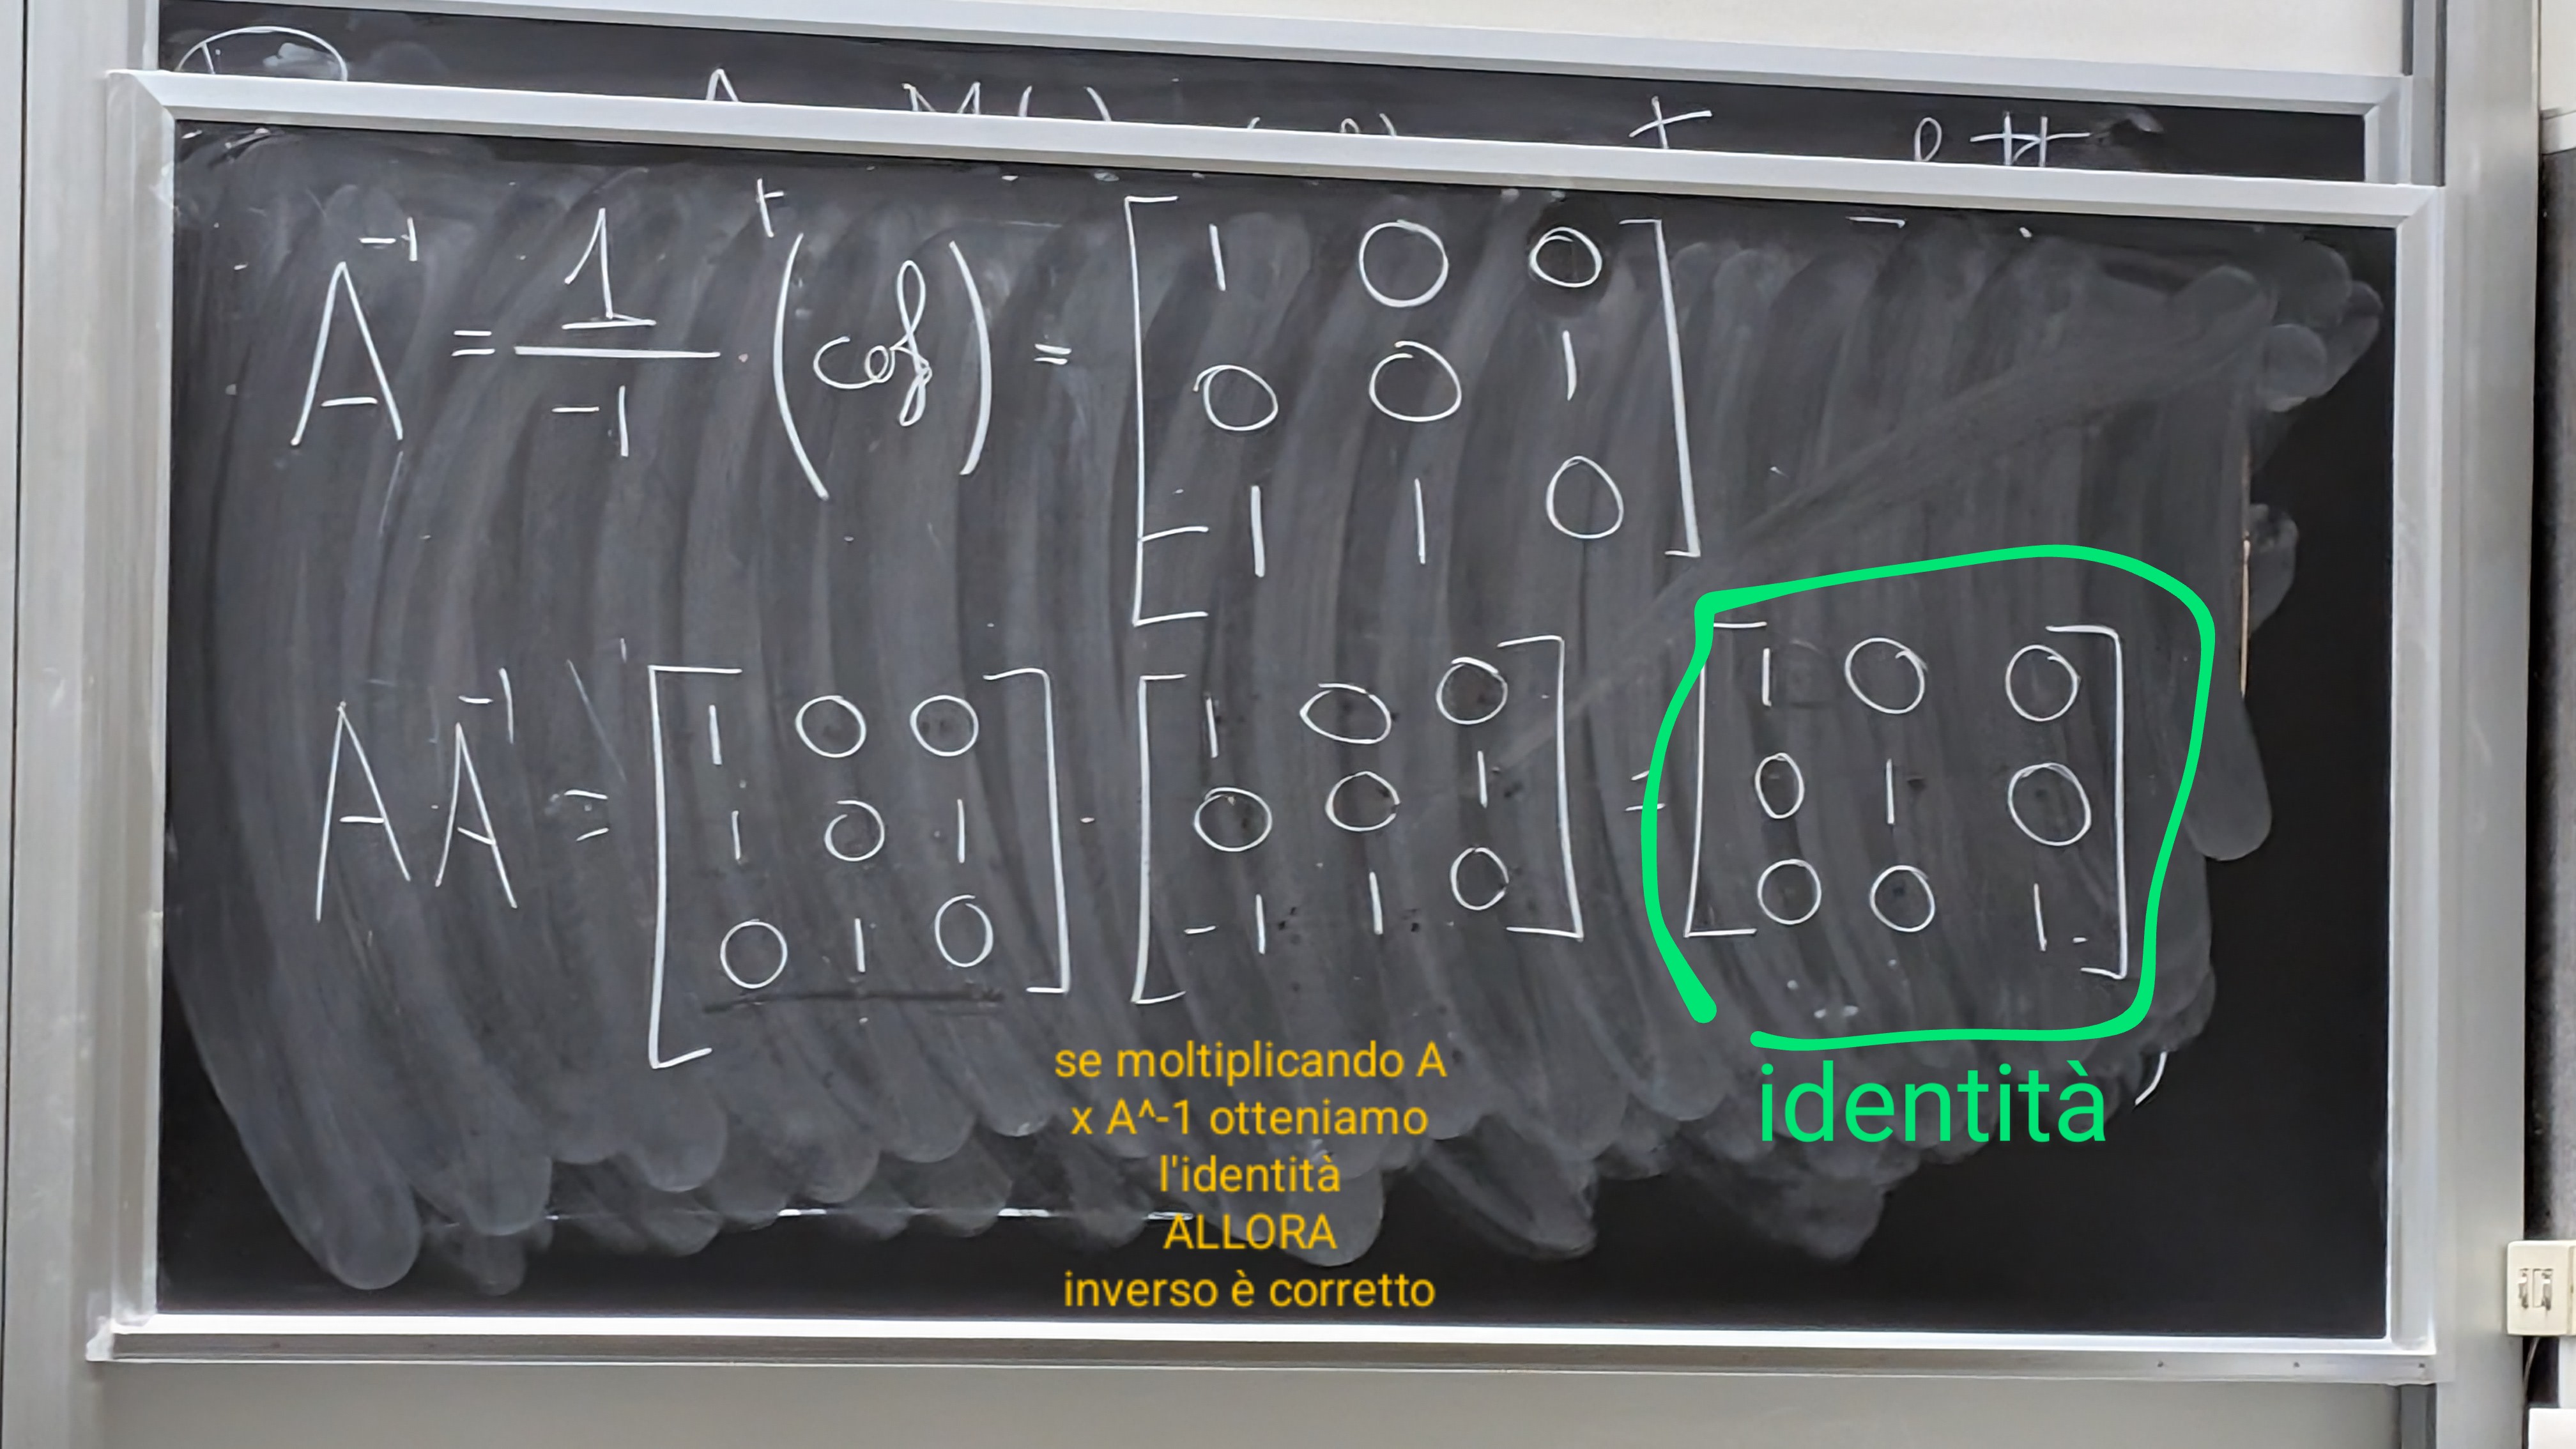 A M( )
A⁻¹ = 1/-1 · ᵗ(cof) = [1 0 0
0 0 1
-1 1 0]
A A⁻¹ = [1 0 0
1 0 1
0 1 0] · [1 0 0
0 0 1
-1 1 0] = [1 0 0
0 1 0
0 0 1]
identità
se moltiplicando A
x A^-1 otteniamo
l'identità
ALLORA
inverso è corretto